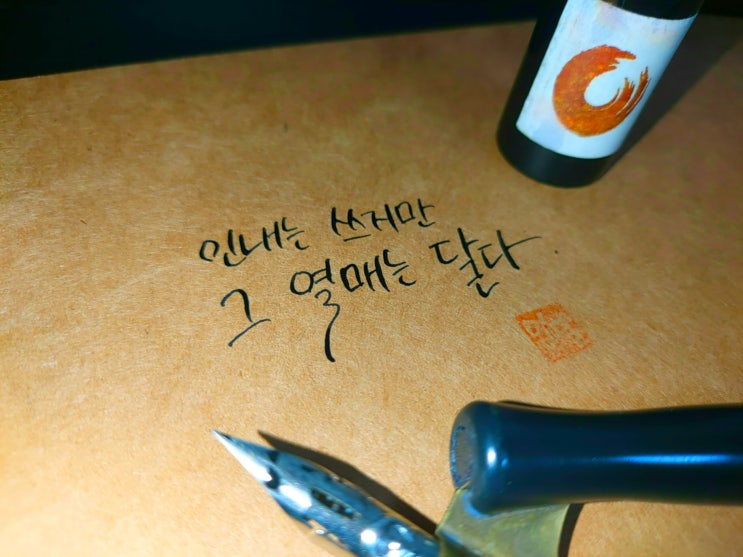 인내는 쓰지만
그 열매는 달다